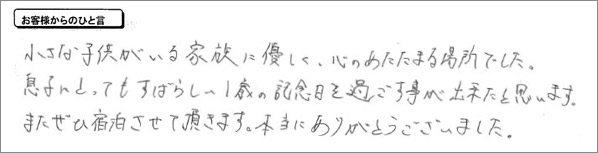 お客様からのひと言
小さな子供がいる家族に優しく、心のあたたまる場所でした。
息子にとってもすばらしい1歳の記念日を過ごす事が出来たと思います。
またぜひ宿泊させて頂きます。本当にありがとうございました。